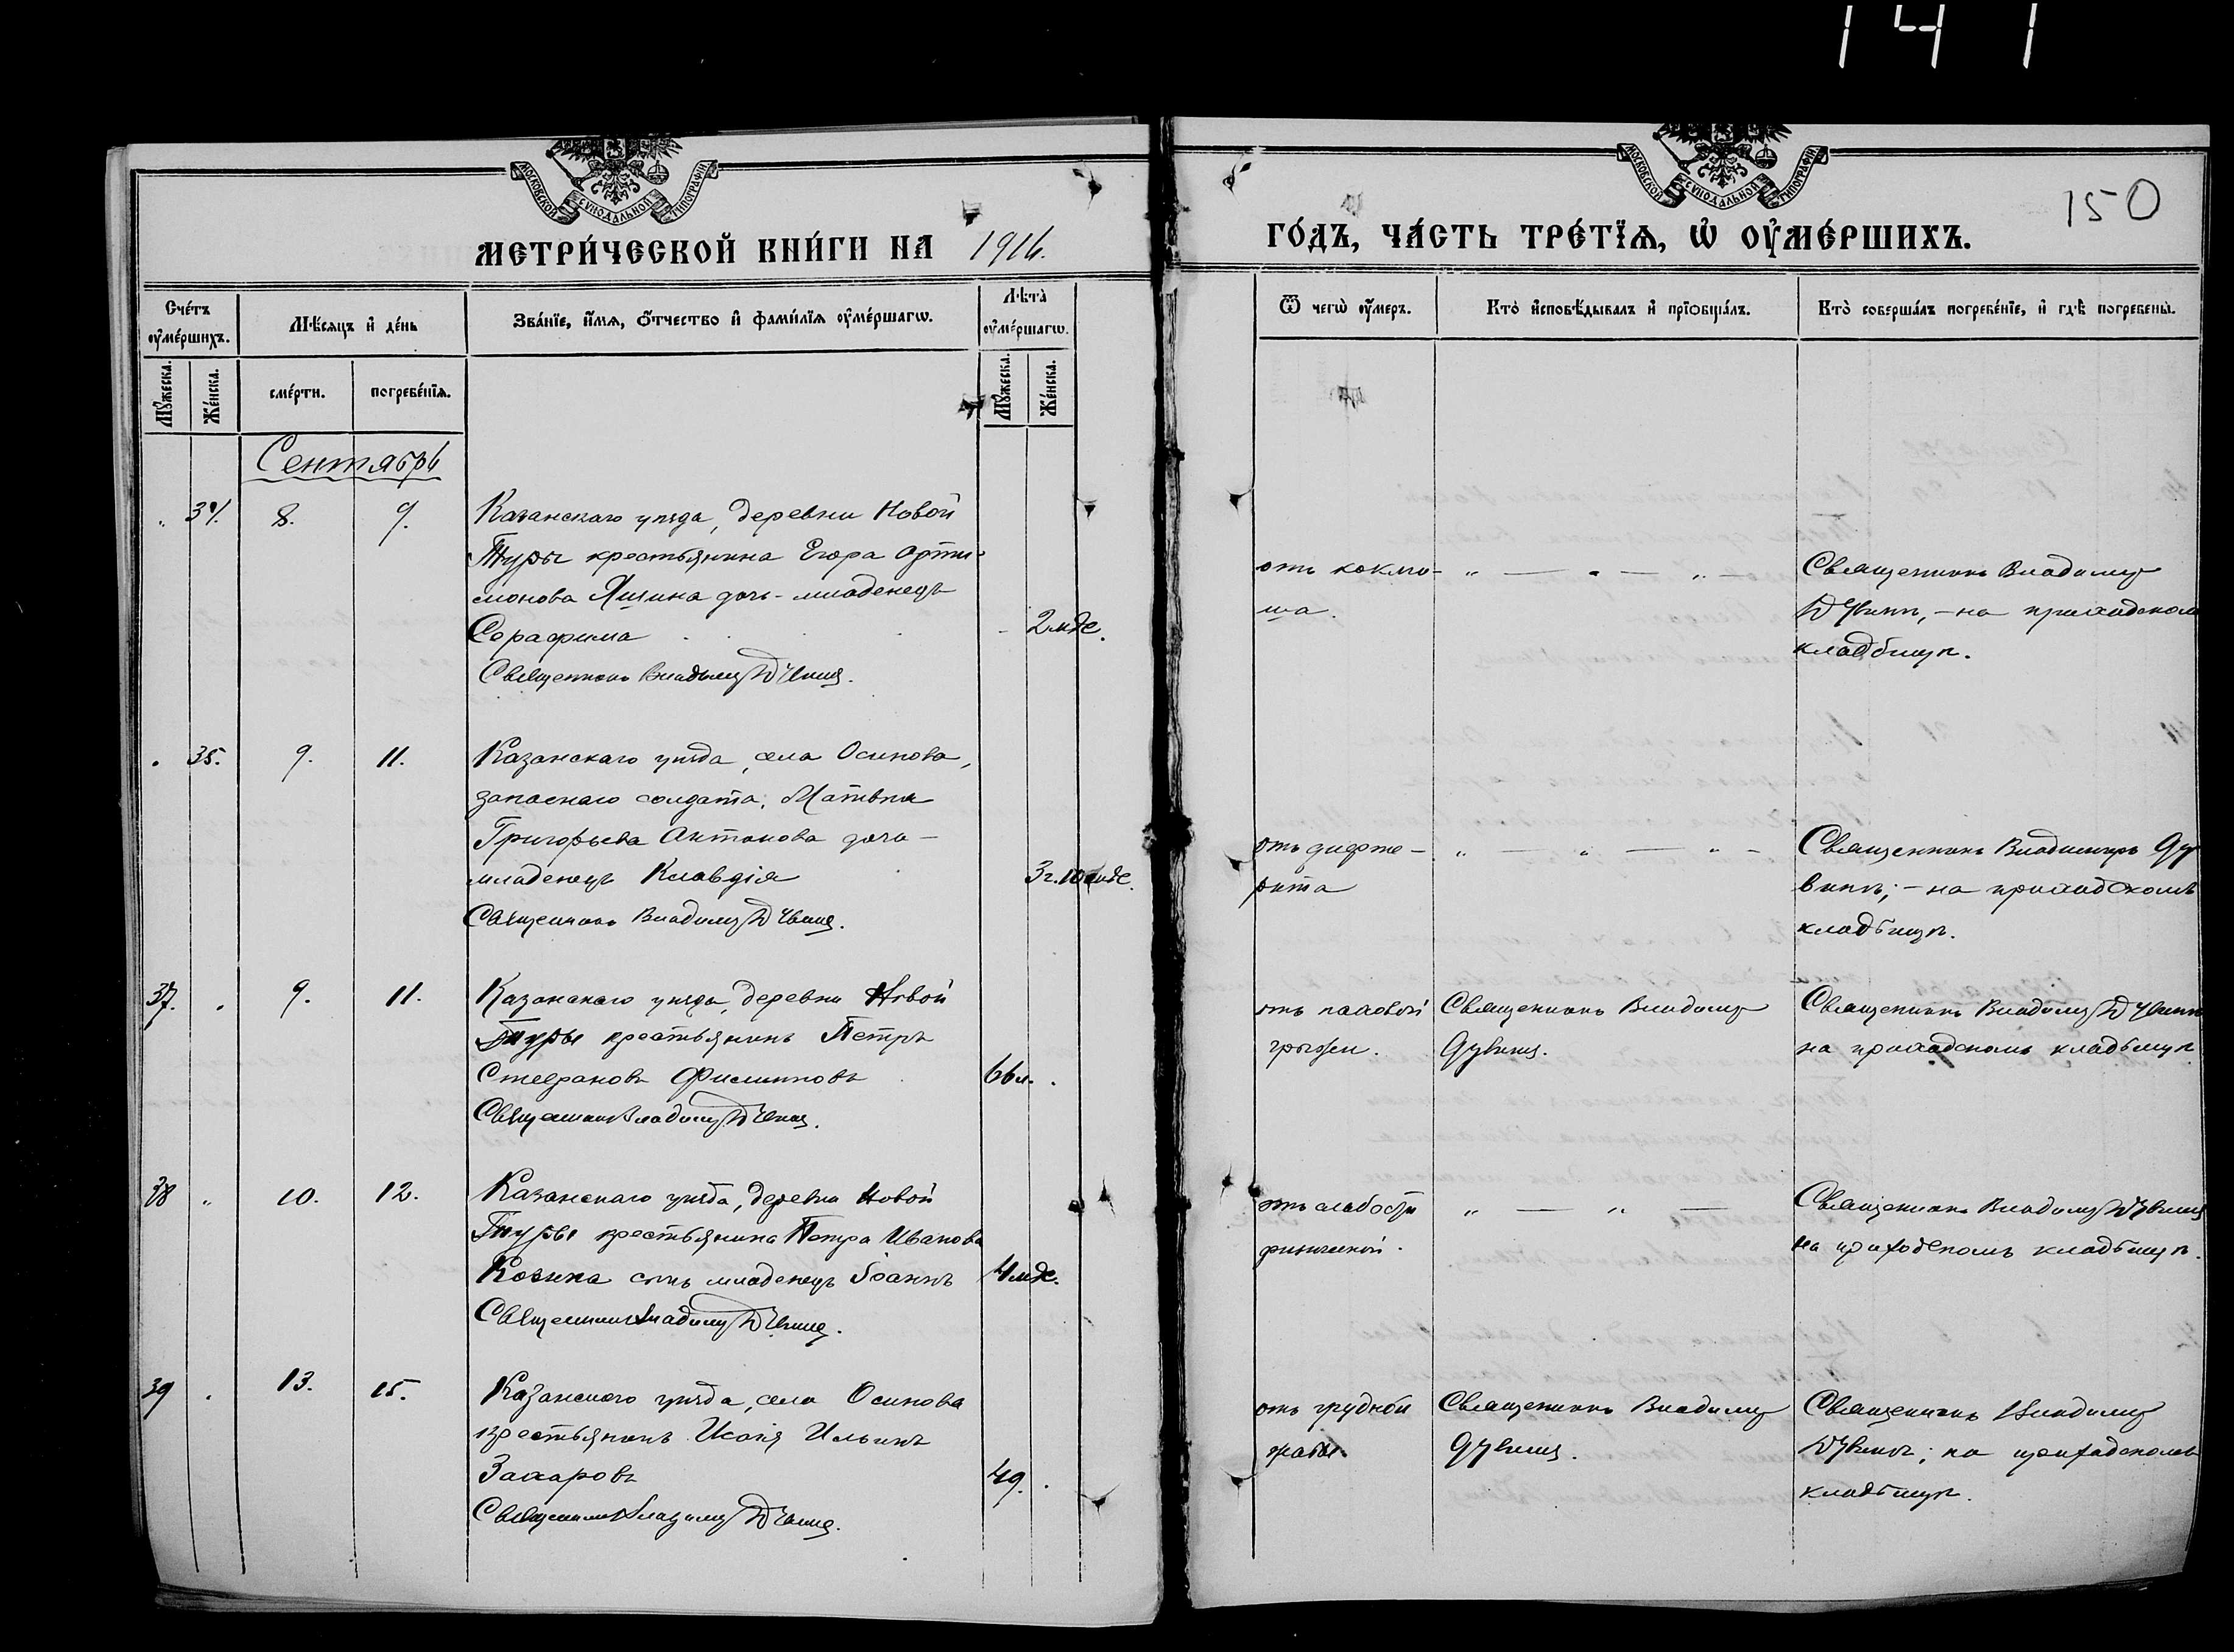 141
150
МОСКОВСКОЙ СѴНОДАЛЬНОЙ ТИПОГРАФІИ
МОСКОВСКОЙ СѴНОДАЛЬНОЙ ТИПОГРАФІИ
МЕТРИ́ЧЕСКОЙ КНИ́ГИ НА 1916. ГО́ДЪ, ЧА́СТЬ ТРЕ́ТЇѦ, Ѡ҆ ОУ҆МЕ́РШИХЪ.
Сче́тъ оу҆ме́ршихъ.
Мѣ́сяцъ и҆ де́нь
Зва́нїе, и҆́мѧ, ѻ҆́тчество и҆ фами́лїѧ оу҆ме́ршагѡ.
Лѣта̀ оу҆ме́ршагѡ.
Ѿ чегѡ̀ оу҆́меръ.
Кто̀ и҆сповѣ́дывалъ и҆ прїѡбща́лъ.
Кто̀ соверша́лъ погребе́нїе, и҆ гдѣ̀ погребены̀.
Мꙋ́жеска. Же́нска. сме́рти. погребе́нїѧ. Мꙋ́жеска. Же́нска.
Сентябрь
„ 34. 8. 9. Казанскаго уѣзда, деревни Новой
Туры крестьянина Егора Арти-
монова Яшина дочь - младенецъ
Серафима - 2 мѣс.
Священникъ Владимiръ Дувинъ.
отъ коклю- „ — „ — „ —
ша.
Священникъ Владимiръ
Дувинъ, - на приходском
кладбищѣ.
„ 35. 9. 11. Казанскаго уѣзда, села Осинова,
запаснаго солдата, Матвѣя
Григорьева Антонова дочь -
младенецъ Клавдія 3 г. 10 мѣс.
Священникъ Владимiръ Дувинъ.
отъ дифте- „ — „ — „ —
рита
Священникъ Владимiръ Ду
винъ; - на приходскомъ
кладбищѣ.
37. „ 9. 11. Казанскаго уѣзда, деревни Новой
Туры крестьянинъ Петръ
Стефановъ Филипповъ 66 л. .
Священникъ Владимiръ Дувинъ.
отъ паховой
грыжи.
Священникъ Владимiръ
Дувинъ.
Священникъ Владимiръ Дувинъ
на приходскомъ кладбищѣ
38 „ 10. 12. Казанскаго уѣзда, деревни Новой
Туры крестьянина Петра Иванова
Козина сынъ младенецъ Іоаннъ 4 мѣс.
Священникъ Владимiръ Дувинъ.
отъ слабости „ — „ —
физической.
Священникъ Владимiръ Дувинъ
на приходскомъ кладбищѣ.
39 . 13. 15. Казанскаго уѣзда, села Осинова
крестьянинъ Исаія Ильинъ
Захаровъ 49. .
Священникъ Владимiръ Дувинъ.
отъ грудной
жабы.
Священникъ Владимiръ
Дувинъ.
Священникъ Владимiръ
Дувинъ; на приходскомъ
кладбищѣ.